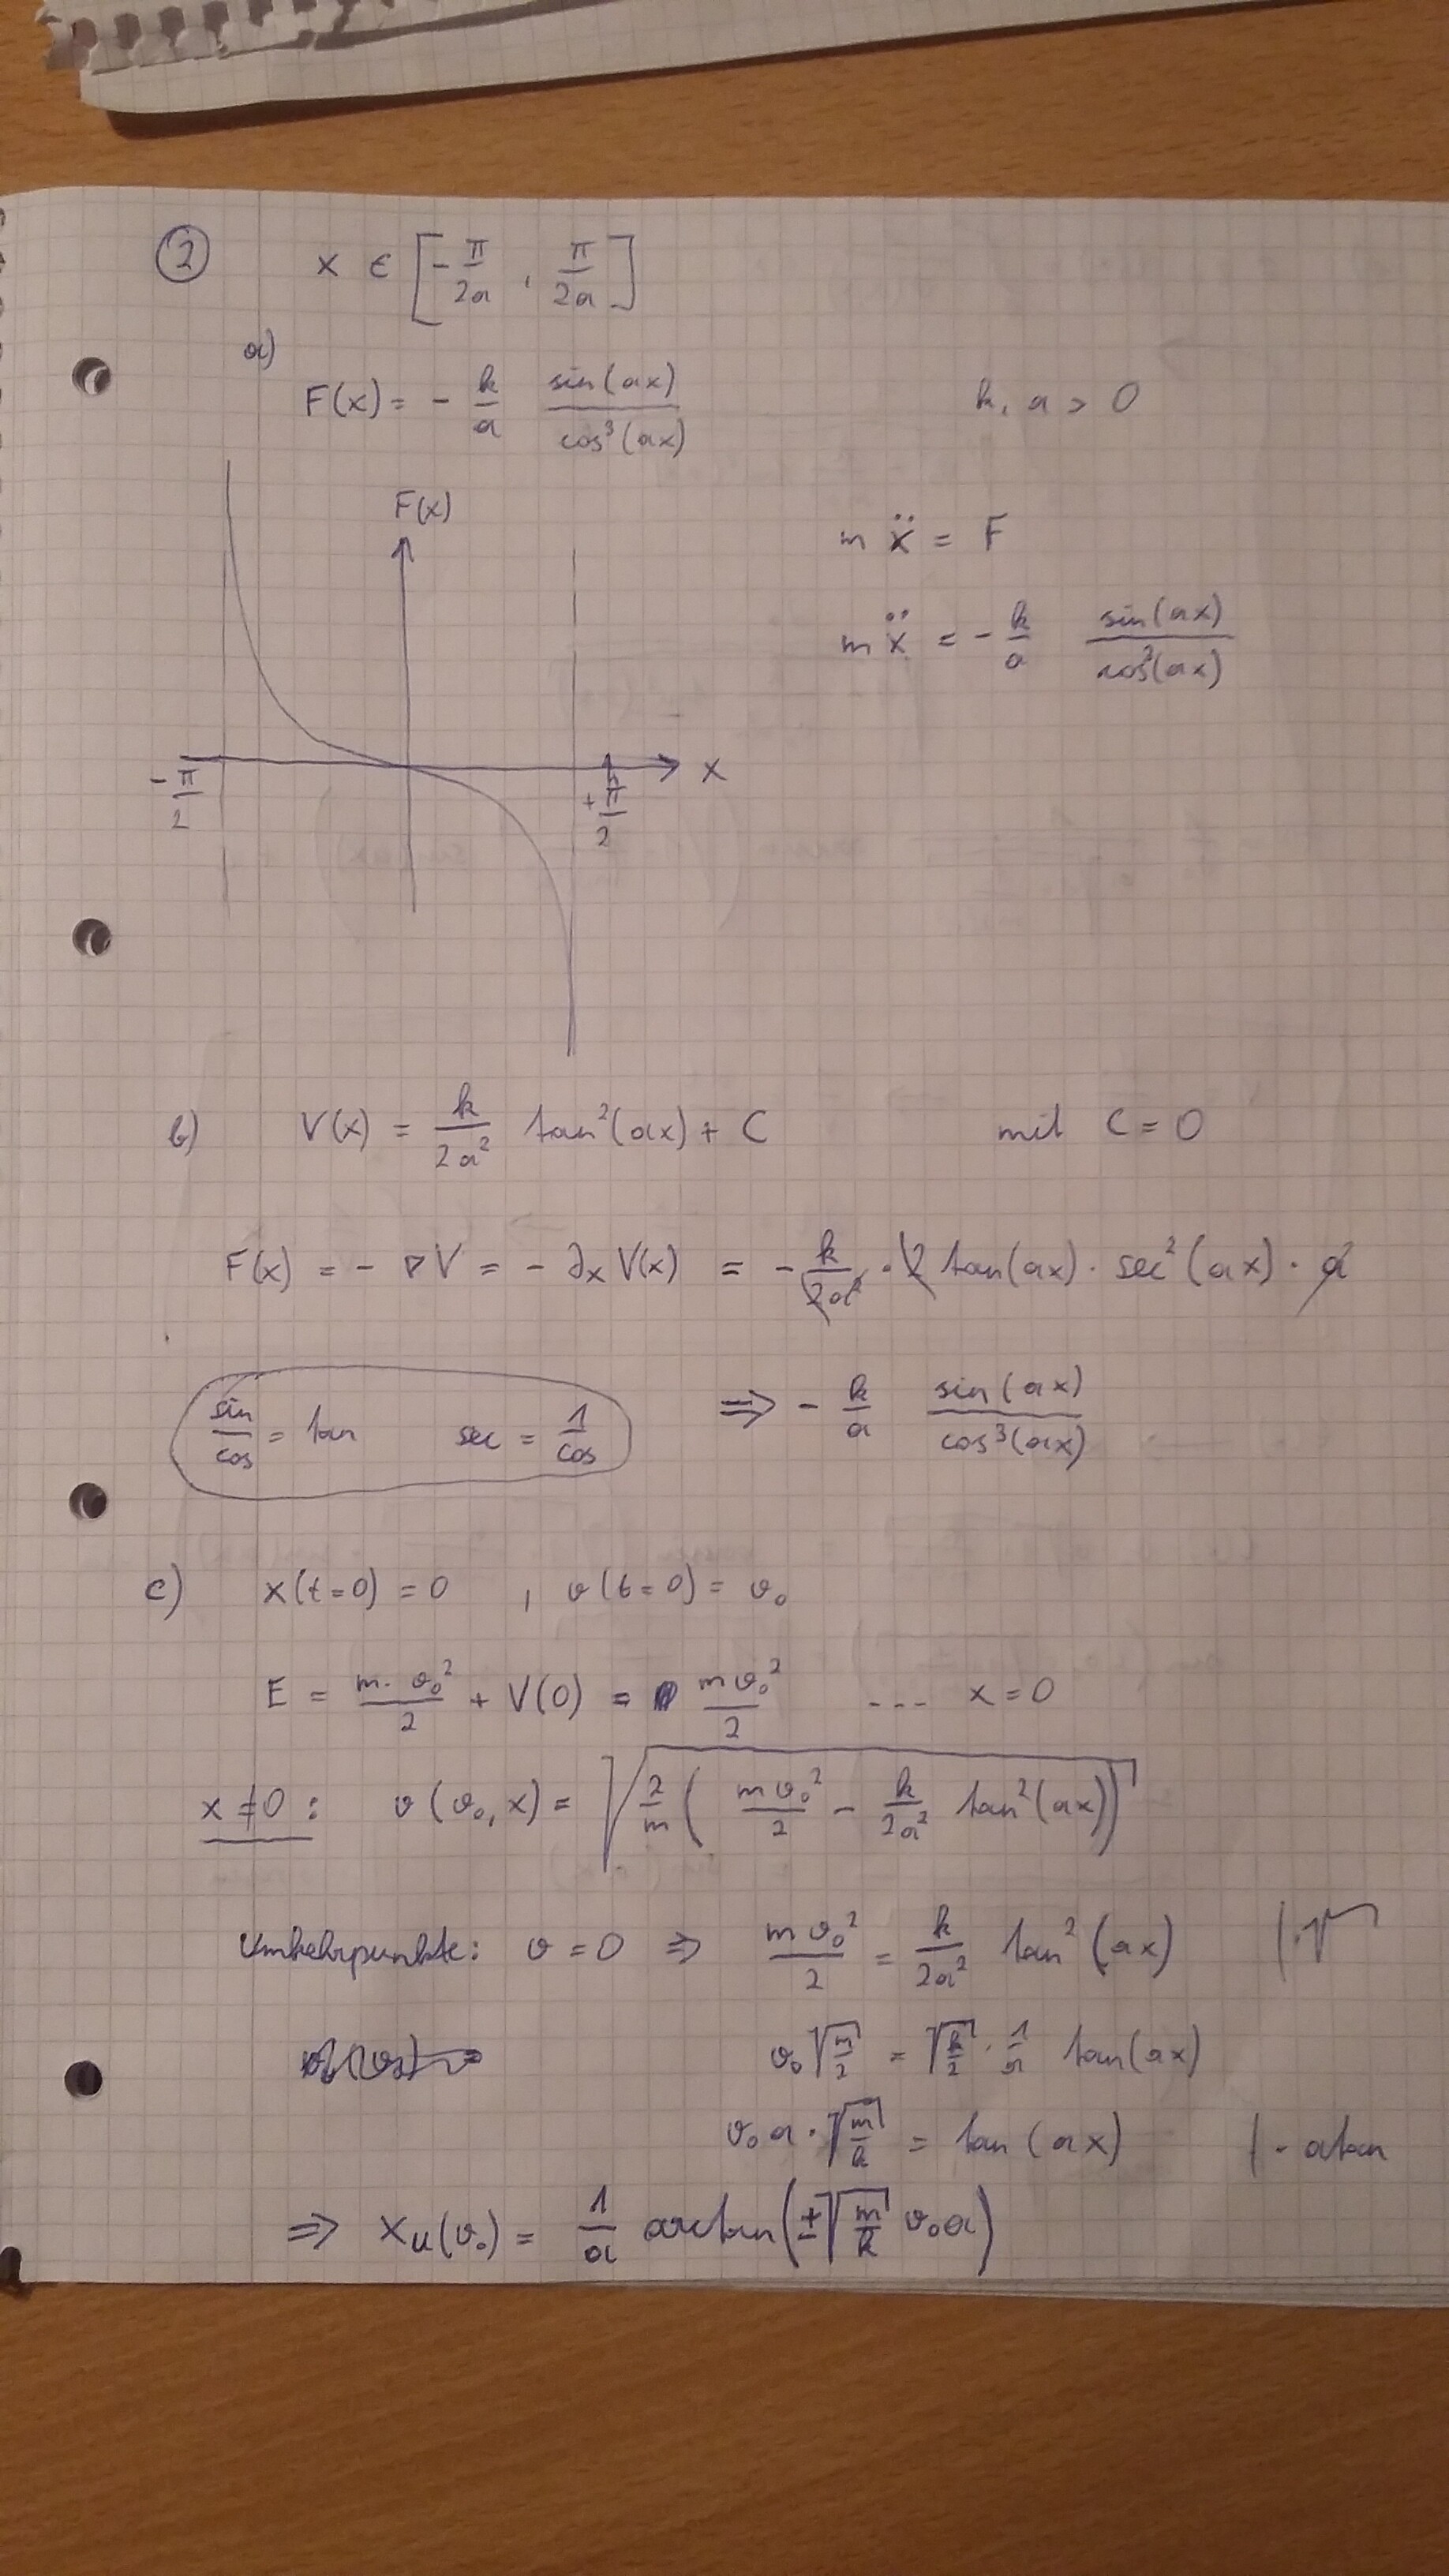 ② x ∈ [-π/2a , π/2a]
a)
F(x) = - k/a sin(ax)/cos³(ax)    k, a > 0
F(x)
m ẍ = F
m ẍ = - k/a sin(ax)/cos³(ax)
-π/2    +π/2    x
b) V(x) = k/2a² tan²(ax) + C    mit C = 0
F(x) = - ∇V = - ∂ₓ V(x) = - k/2a² · 2 tan(ax) · sec²(ax) · a
sin/cos = tan    sec = 1/cos    ⇒ - k/a sin(ax)/cos³(ax)
c) x(t=0) = 0 , v(t=0) = v₀
E = m · v₀²/2 + V(0) = m v₀²/2 --- x = 0
x ≠ 0 : v(v₀, x) = √(2/m (m v₀²/2 - k/2a² tan²(ax)))
Umkehrpunkte: v = 0 ⇒ m v₀²/2 = k/2a² tan²(ax)    | · √
v₀ √(m/2) = √(k/2) · 1/a tan(ax)
v₀ a · √(m/k) = tan(ax)    | · atan
⇒ x_u(v₀) = 1/a arctan(±√(m/k) v₀a)